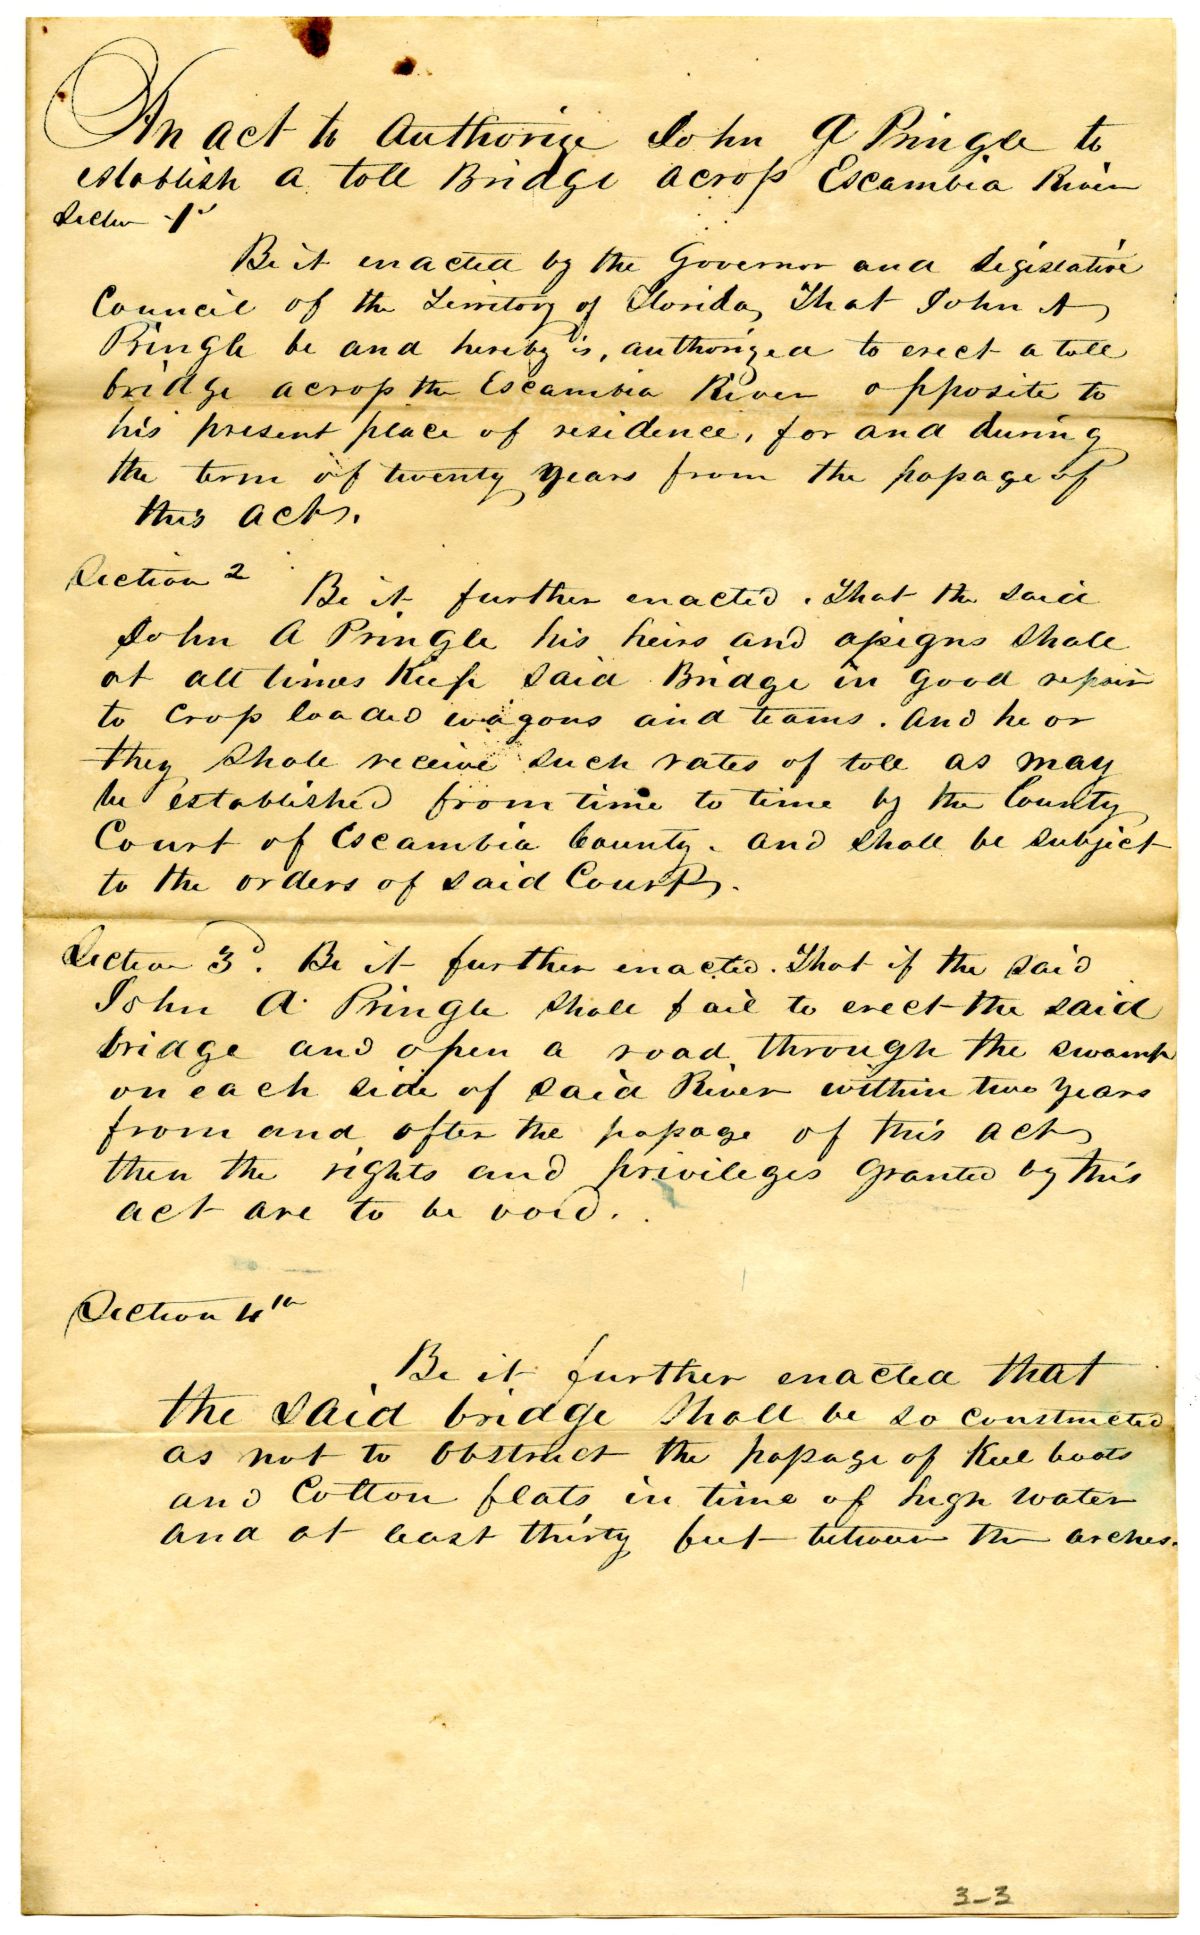 An act to Authorize John A Pringle to
establish a toll Bridge across Escambia River
Section 1st
Be it enacted by the Governor and Legislative
Council of the Territory of Florida, That John A
Pringle be and hereby is, authorized to erect a toll
bridge across the Escambia River opposite to
his present place of residence, for and during
the term of twenty years from the passage of
this act.
Section 2
Be it further enacted. That the said
John A Pringle his heirs and assigns shall
at all times keep said Bridge in good repair
to cross loaded wagons and teams. And he or
they shall receive such rates of toll as may
be established from time to time by the County
Court of Escambia County. and shall be subject
to the orders of said Court.
Section 3d. Be it further enacted. That if the said
John A. Pringle shall fail to erect the said
bridge and open a road through the swamp
on each side of said River within two years
from and after the passage of this act
then the rights and privileges granted by this
act are to be void.
Section 4th
Be it further enacted that
the said bridge shall be so constructed
as not to obstruct the passage of Keel boats
and Cotton flats in time of high water
and at least thirty feet between the arches.
3-3